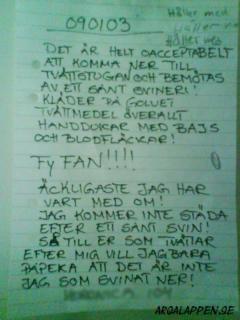 090103
Håller med
Håller med
DET ÄR HELT OACCEPTABELT
ATT KOMMA NER TILL
TVÄTTSTUGAN OCH BEMÖTAS
AV ETT SÅNT SVINERI!
KLÄDER PÅ GOLVET
TVÄTTMEDEL ÖVERALLT
HANDDUKAR MED BAJS
OCH BLODFLÄCKAR!
FY FAN!!!!
ÄCKLIGASTE JAG HAR
VART MED OM!
JAG KOMMER INTE STÄDA
EFTER ETT SÅNT SVIN!
SÅ TILL ER SOM TVÄTTAR
EFTER MIG VILL JAG BARA
PÅPEKA ATT DET ÄR INTE
JAG SOM SVINAT NER!
ARGALAPPEN.SE